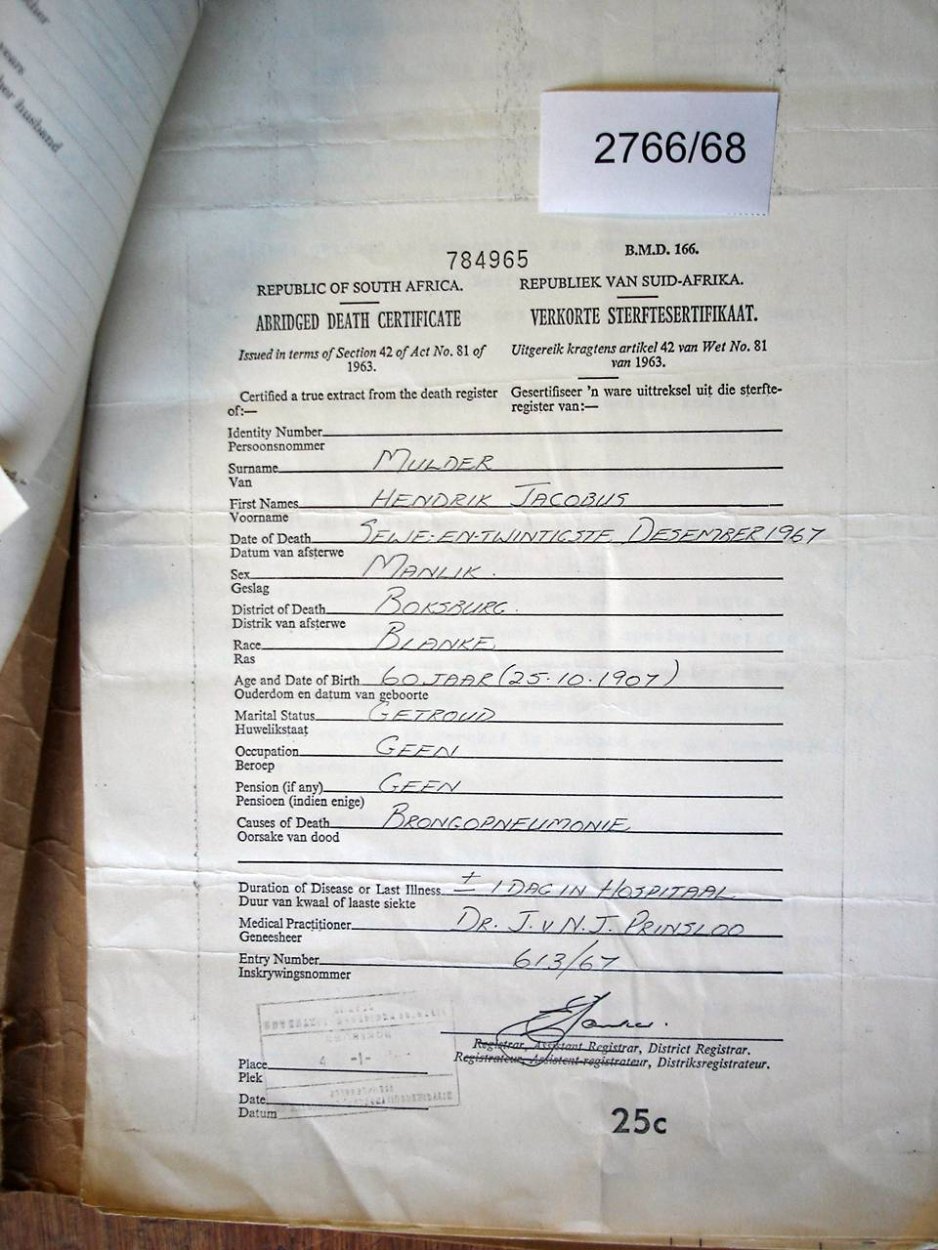 her husband
2766/68
784965
B.M.D. 166.
REPUBLIC OF SOUTH AFRICA.
REPUBLIEK VAN SUID-AFRIKA.
ABRIDGED DEATH CERTIFICATE
VERKORTE STERFTESERTIFIKAAT.
Issued in terms of Section 42 of Act No. 81 of
1963.
Uitgereik kragtens artikel 42 van Wet No. 81
van 1963.
Certified a true extract from the death register
of:—
Gesertifiseer 'n ware uittreksel uit die sterfte-
register van:—
Identity Number
Persoonsnommer
Surname MULDER
Van
First Names HENDRIK JACOBUS
Voorname
Date of Death SEWE-EN-TWINTIGSTE DESEMBER 1967
Datum van afsterwe
Sex MANLIK.
Geslag
District of Death BOKSBURG.
Distrik van afsterwe
Race BLANKE
Ras
Age and Date of Birth 60 JAAR (25.10.1907)
Ouderdom en datum van geboorte
Marital Status GETROUD
Huwelikstaat
Occupation GEEN
Beroep
Pension (if any) GEEN
Pensioen (indien enige)
Causes of Death BRONGOPNEUMONIE
Oorsake van dood
Duration of Disease or Last Illness ± 1 DAG IN HOSPITAAL
Duur van kwaal of laaste siekte
Medical Practitioner DR. J. V N. J. PRINSLOO
Geneesheer
Entry Number 613/67
Inskrywingsnommer
Registrar, Assistant Registrar, District Registrar.
Registrateur, Assistent-registrateur, Distriksregistrateur.
Place
Plek
Date
Datum
25c